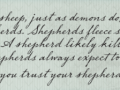 sheep, just as demons do
herds. Shepherds fleece s
A shepherd likely kill
epherds always expect to
you trust your shepherd